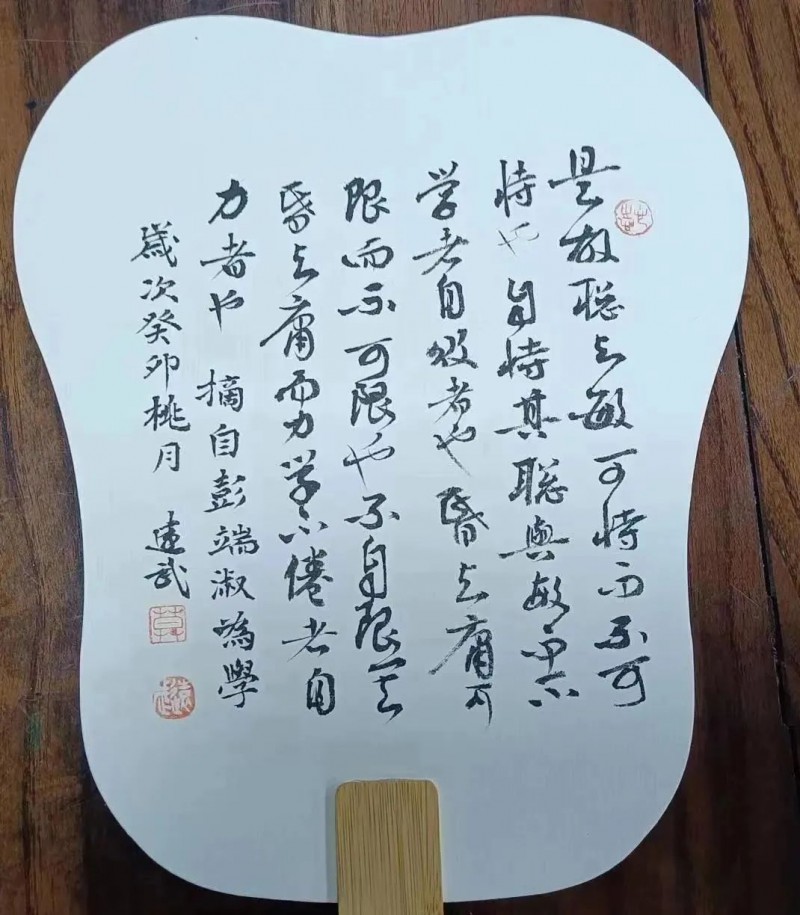 是故聪与敏可恃而不可
恃也自恃其聪與敏而不
学者自败者也昏与庸可
限而不可限也不自限其
昏与庸而力学不倦者自
力者也 摘自彭端淑為學
歲次癸卯桃月 遠武